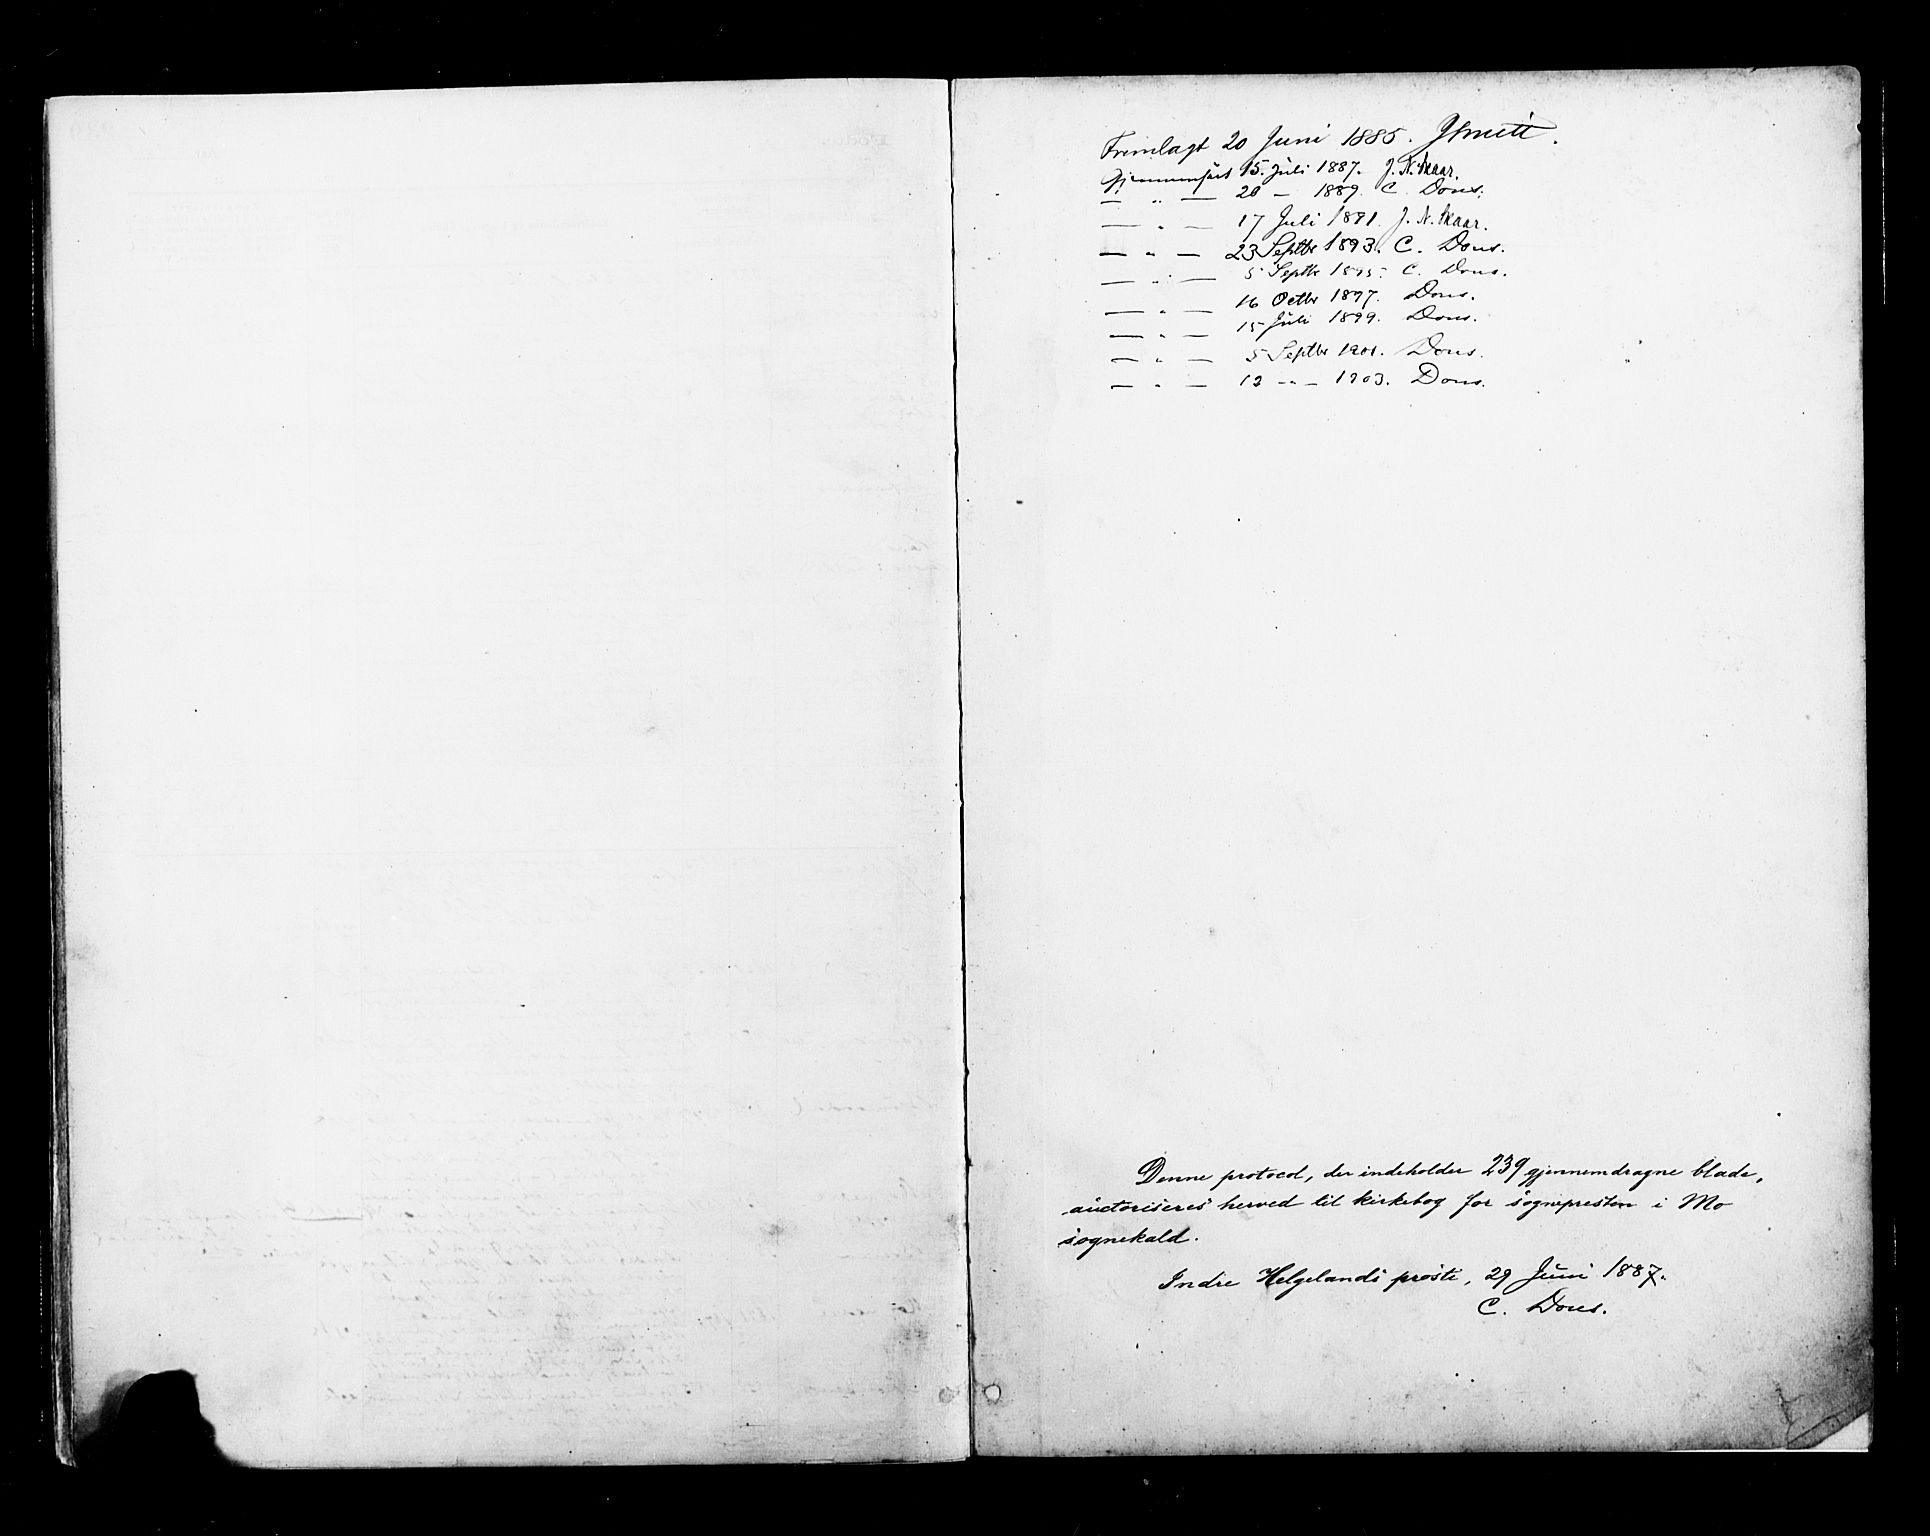 Fremlagt 20 Juni 1885.
Gjennemseet 15. Juli 1887. J. N. Skaar.
— " — 20 — 1889. C. Dons.
— " — 17 Juli 1891. J. N. Skaar.
— " — 23 Septbr 1893. C. Dons.
— " — 5 Septbr 1895. C. Dons.
— " — 16 Octbr 1897. Dons.
— " — 15 Juli 1899. Dons.
— " — 5 Septbr 1901. Dons.
— " — 12 — " — 1903. Dons.
Denne protocol, der indeholder 239 gjennemdragne blade,
auctoriseres herved til kirkebog for sognepresten i Mo
sognekald.
Indre Helgelands prosti, 29 Juni 1887.
C. Dons.